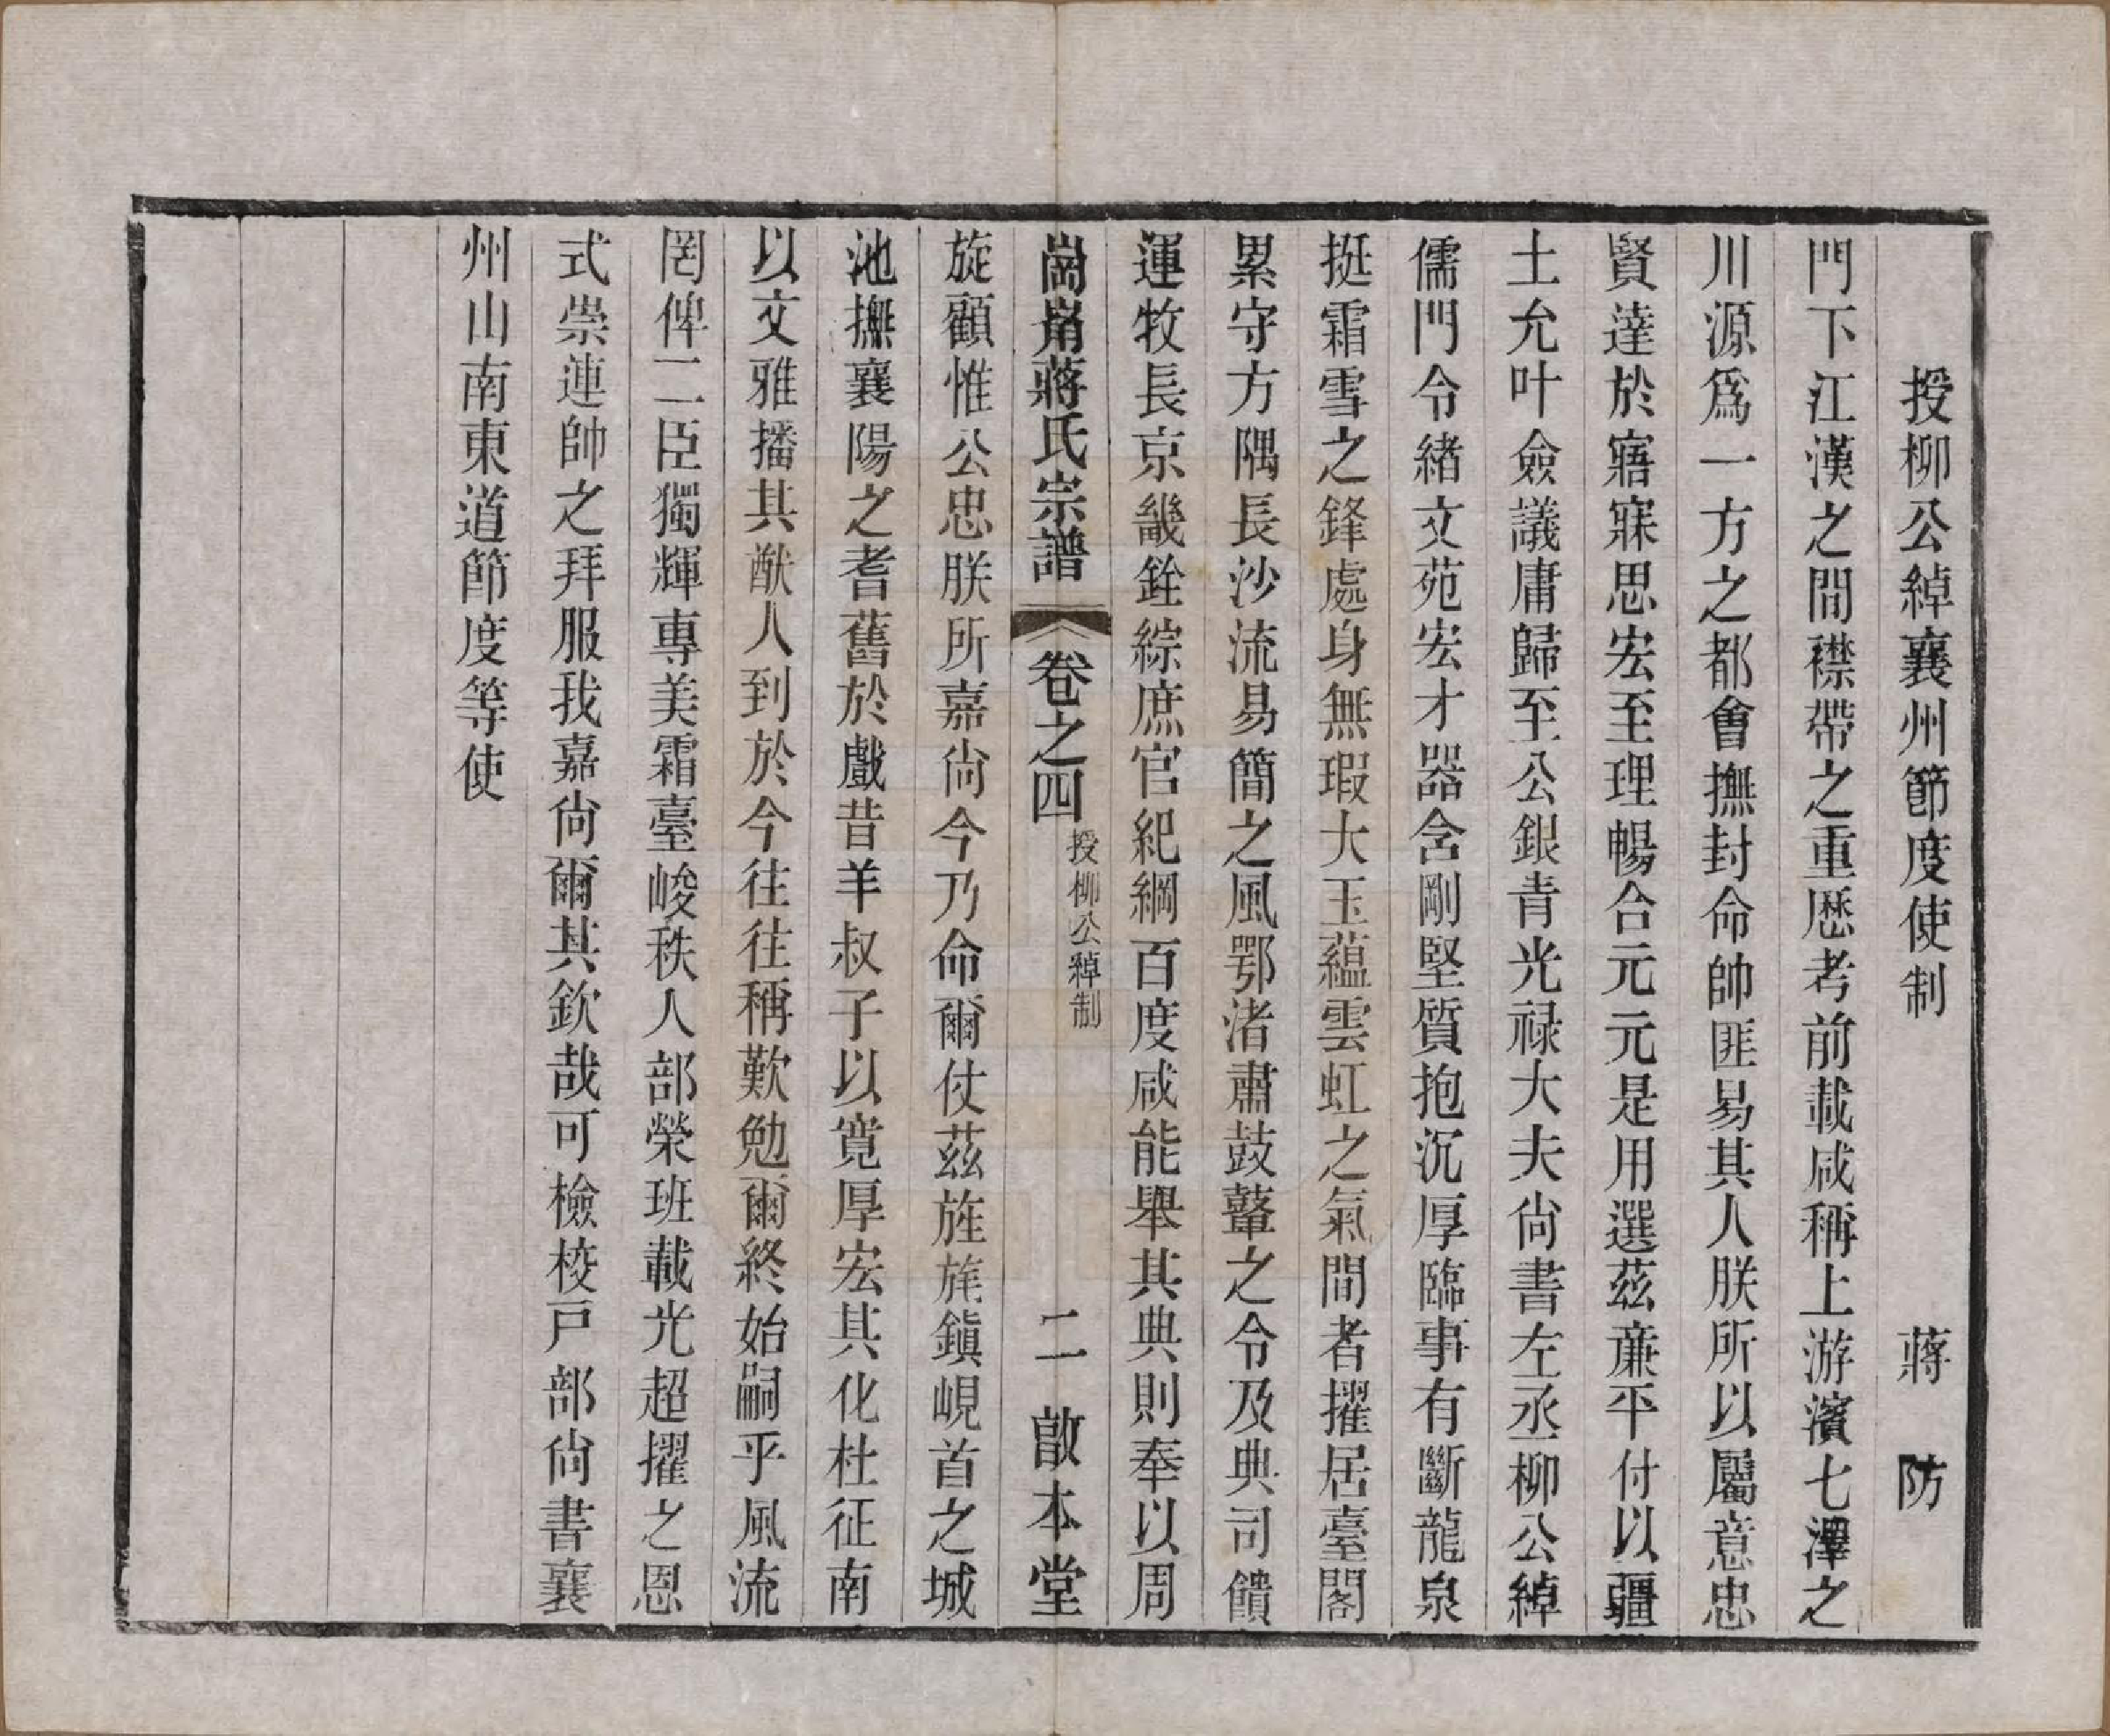 授柳公綽襄州節度使制 蔣防
門下江漢之間襟帶之重歷考前載咸稱上游濱七澤之
川源爲一方之都會撫封命帥匪易其人朕所以屬意忠
賢達於寤寐思宏至理暢合元元是用選茲廉平付以疆
土允叶僉議庸歸至公銀青光祿大夫尙書左丞柳公綽
儒門令緒文苑宏才器含剛堅質抱沉厚臨事有斷龍泉
挺霜雪之鋒處身無瑕大玉蘊雲虹之氣間者擢居臺閣
累守方隅長沙流易簡之風鄂渚肅鼓鼙之令及典司饋
運牧長京畿銓綜庶官紀綱百度咸能舉其典則奉以周
崗㟁蔣氏宗譜 卷之四 授柳公綽制 二 啟本堂
旋顧惟公忠朕所嘉尙今乃命爾仗茲旌旄鎭峴首之城
池撫襄陽之耆舊於戲昔羊叔子以寬厚宏其化杜征南
以文雅播其猷人到於今往往稱歎勉爾終始嗣乎風流
罔俾二臣獨輝專美霜臺峻秩人部榮班載光超擢之恩
式崇連帥之拜服我嘉尙爾其欽哉可檢校戸部尙書襄
州山南東道節度等使